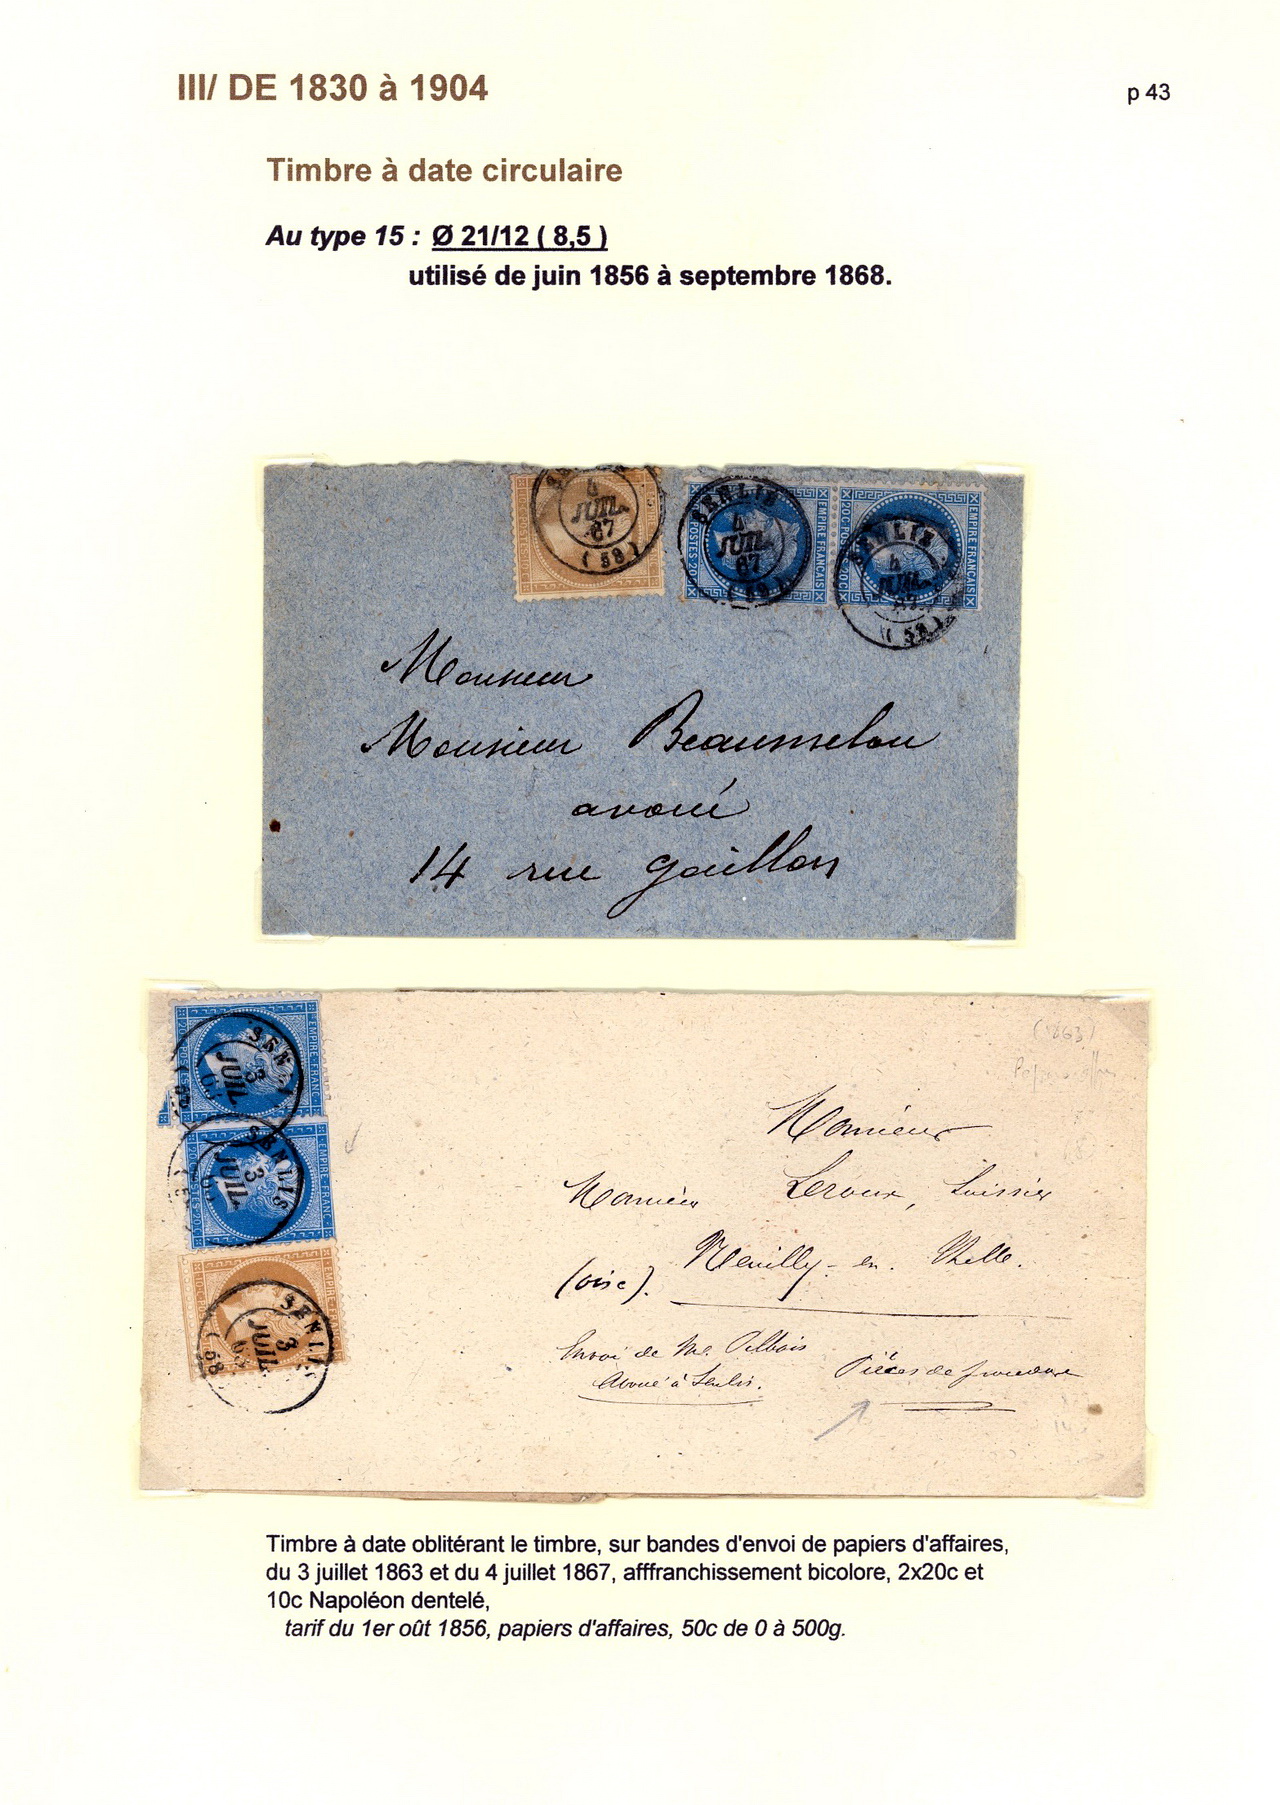 III/ DE 1830 à 1904
p 43
Timbre à date circulaire
Au type 15 : Ø 21/12 ( 8,5 )
utilisé de juin 1856 à septembre 1868.
4
JUIL
67
( 58 )
SENLIS
4
JUIL
67
( 58 )
20C POSTES 20C
EMPIRE FRANÇAIS
SENLIS
4
JUIL
67
( 58 )
EMPIRE FRANÇAIS
Monsieur
Monsieur Beaumelou
avoué
14 rue Gaillon
(1863)
EMPIRE FRANC
SENLIS
3
JUIL
EMPIRE FRANC
SENLIS
3
JUIL
SENLIS
3
JUIL
63
( 58 )
Monsieur
Monsieur Leroux, huissier
Neuilly-en-Thelle.
(oise).
Envoi de Me
Avoué à Senlis.
Pièces de procédure
Timbre à date oblitérant le timbre, sur bandes d'envoi de papiers d'affaires,
du 3 juillet 1863 et du 4 juillet 1867, afffranchissement bicolore, 2x20c et
10c Napoléon dentelé,
tarif du 1er oût 1856, papiers d'affaires, 50c de 0 à 500g.